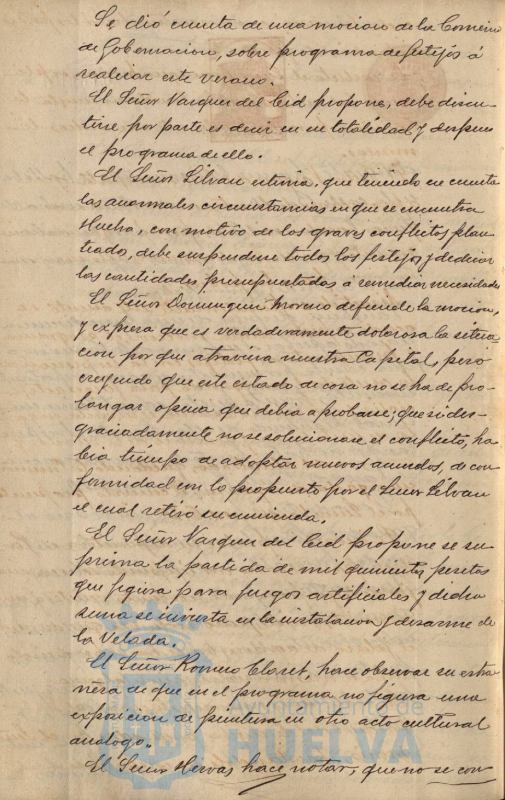 Se dió cuenta de una mocion de la Comision
de Gobernacion, sobre programa de festejos á
realizar este verano.
El Señor Vazquez del Cid propone, debe discu-
tirse por parte es decir en su totalidad y despues
el programa de ello.
El Señor Silvan estima, que teniendo en cuenta
las anormales circunstancias en que se encuentra
Huelva, con motivo de los graves conflictos plan-
teados, debe suspenderse todos los festejos, y dedicar
las cantidades presupuestadas á remediar necesidades
El Señor Dominguez Moreno defiende la mocion,
y expresa que es verdaderamente dolorosa la situa-
cion por que atraviesa nuestra Capital, pero
creyendo que este estado de cosa no se ha de pro-
longar opina que debia aprobarse; que si des-
graciadamente no se solucionase el conflicto, ha-
bra tiempo de adoptar nuevos acuerdos, de con-
formidad con lo propuesto por el Señor Silvan
el cual retiró su enmienda.
El Señor Vazquez del Cid propone se su-
prima la partida de mil quinientas pesetas
que figura para fuegos artificiales y dicha
suma se invierta en la instalacion y desarme de
la Velada.
El Señor Romero Claret, hace observar su estra-
ñesa de que en el programa no figura una
exposicion de pintura en otro acto cultural
analogo.
El Señor Hervas hace notar, que no se con
Ayuntamiento de
HUELVA